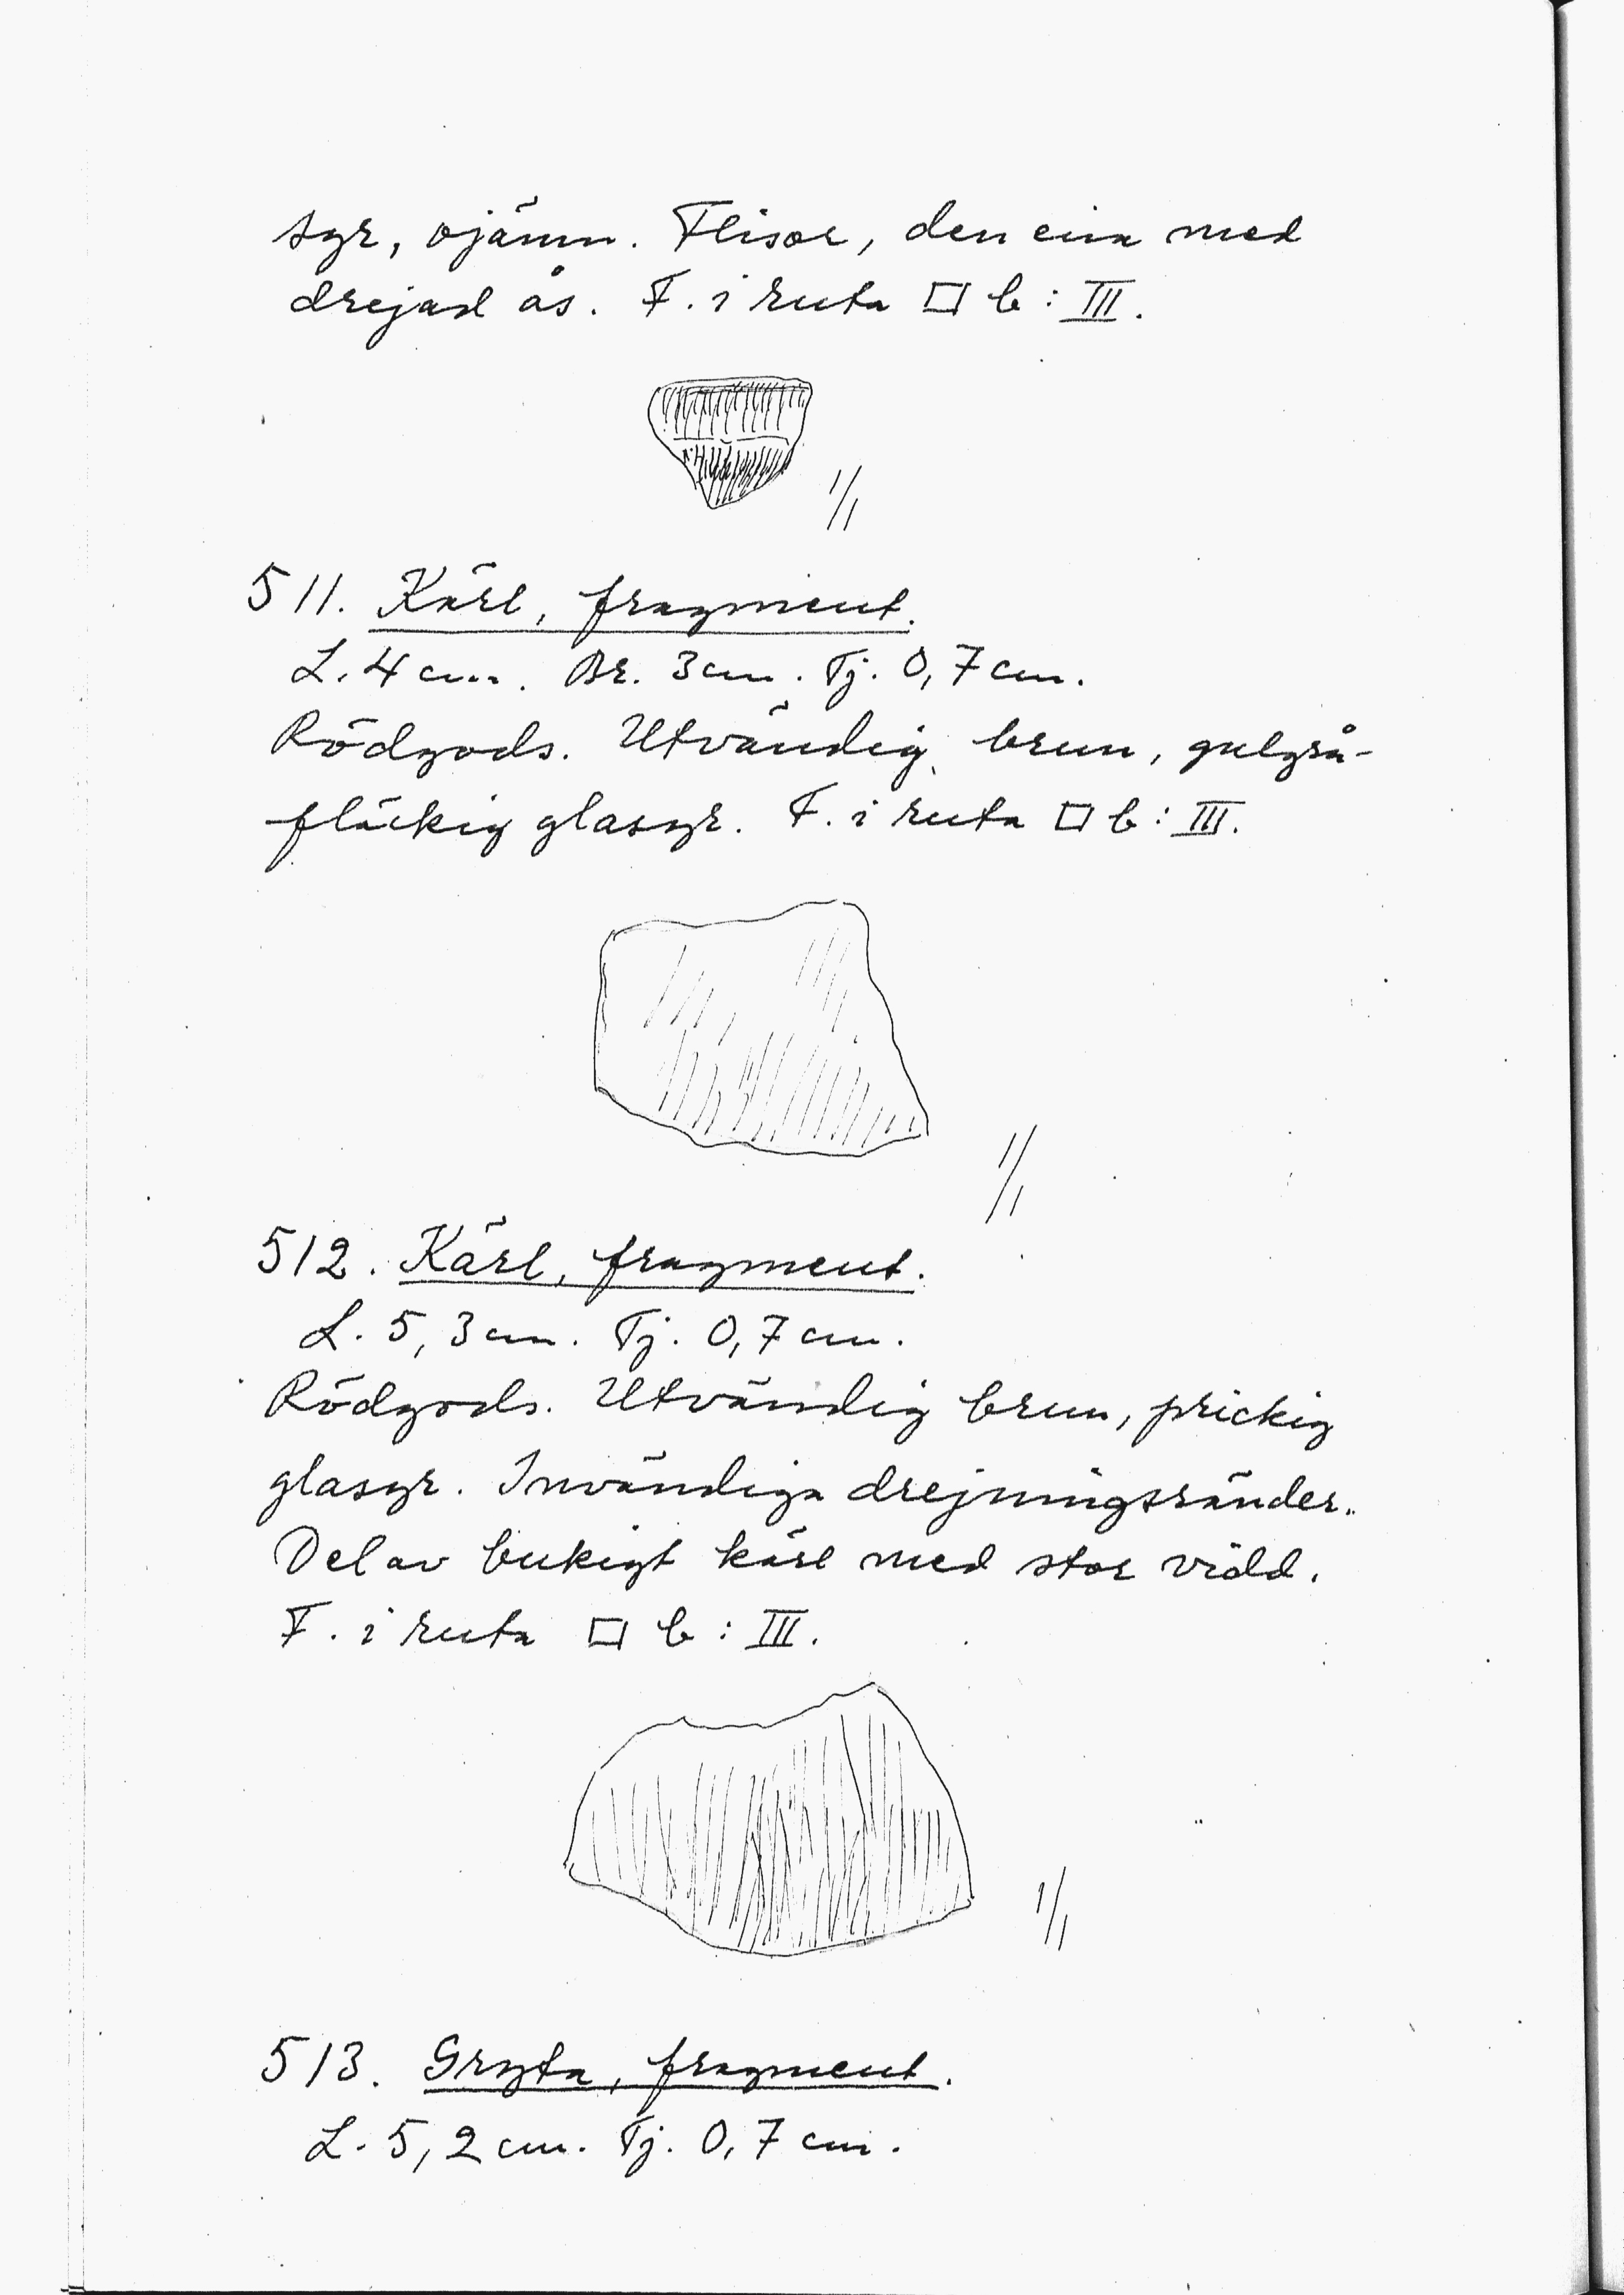 syr, ojämn. Flisor, den ena med
drejad ås. F. i ruta □ b : III.
1/1
511. Kärl, fragment.
L. 4 cm. Br. 3 cm. Tj. 0,7 cm.
Rödgods. Utvändig brun, gulgrå-
fläckig glasyr. F. i ruta □ b : III.
1/1
512. Kärl, fragment.
L. 5,3 cm. Tj. 0,7 cm.
Rödgods. Utvändig brun, prickig
glasyr. Invändiga drejningsränder.
Del av bukigt kärl med stor vidd.
F. i ruta □ b : III.
1/1
513. Gryta, fragment.
L. 5,2 cm. Tj. 0,7 cm.